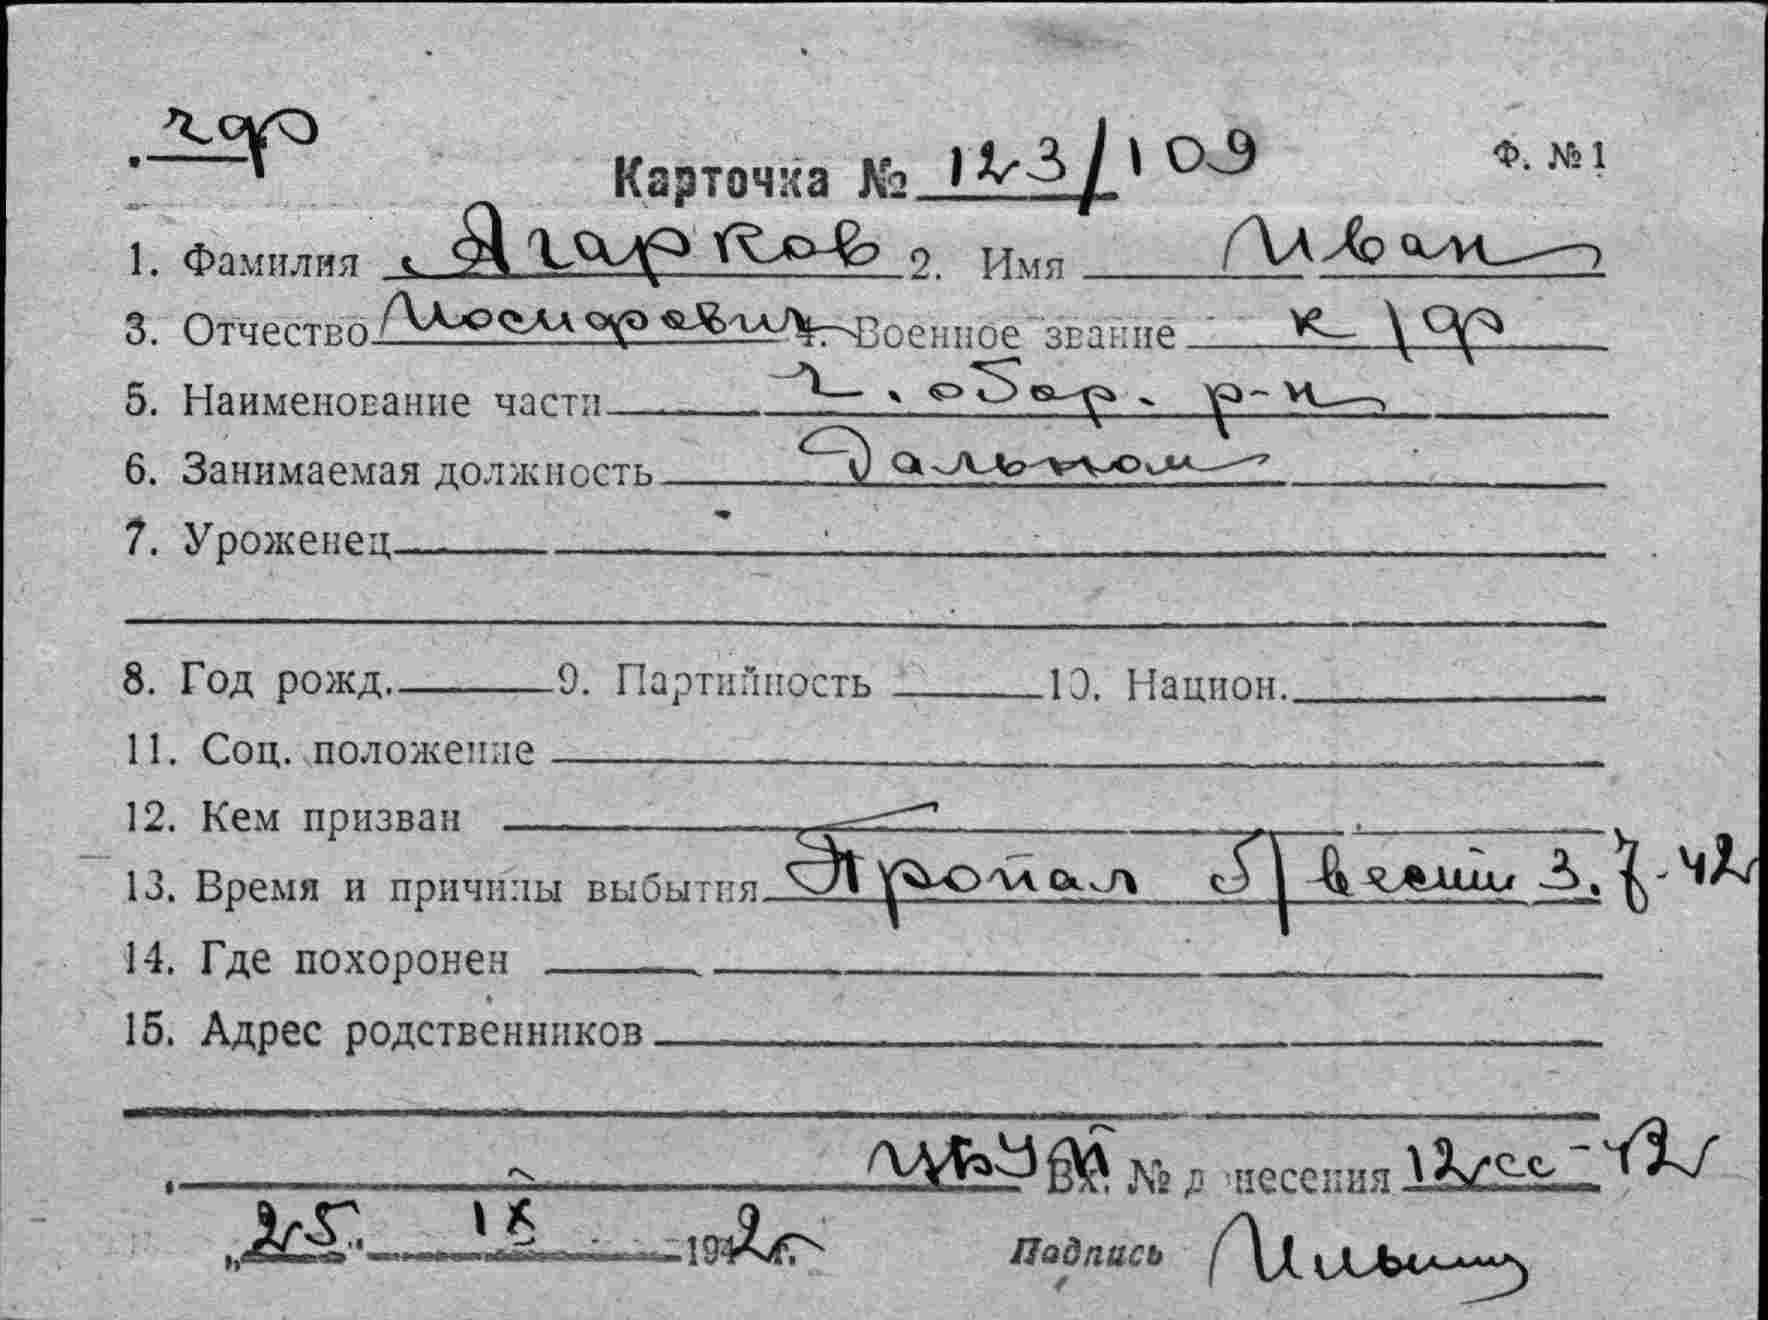 чф
Карточка № 123/109 Ф. №1
1. Фамилия Ягарков 2. Имя Иван
3. Отчество Иосифович 4. Военное звание к/ф
5. Наименование части ч. обор. р-н
6. Занимаемая должность Дальном
7. Уроженец
8. Год рожд. 9. Партийность 10. Национ.
11. Соц. положение
12. Кем призван
13. Время и причины выбытия Пропал б/вести 3.7.42
14. Где похоронен
15. Адрес родственников
Вх. № донесения 12сс-42
„25“ IX 1942г. Подпись Ильин